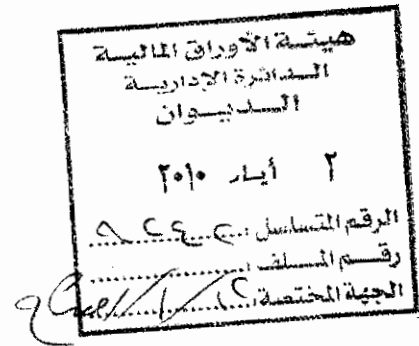 هيئة الأوراق المالية
الدائرة الإدارية
الديوان
٢ أيار ٢٠١٠
الرقم المتسلسل :
رقم الملف :
الجهة المختصة :